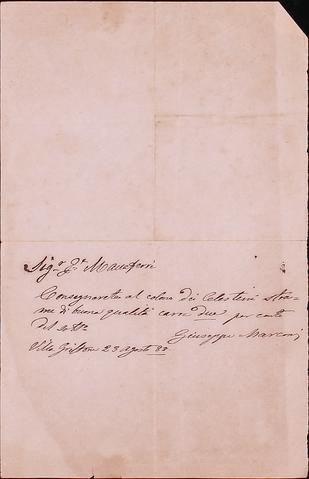 Sig.r G.e Manferri
Consegnarete al colono dei Celestini stra-
me di buona qualità carra due per conto
del sotto
Giuseppe Marconi
Villa Griffone 23 Agosto 88